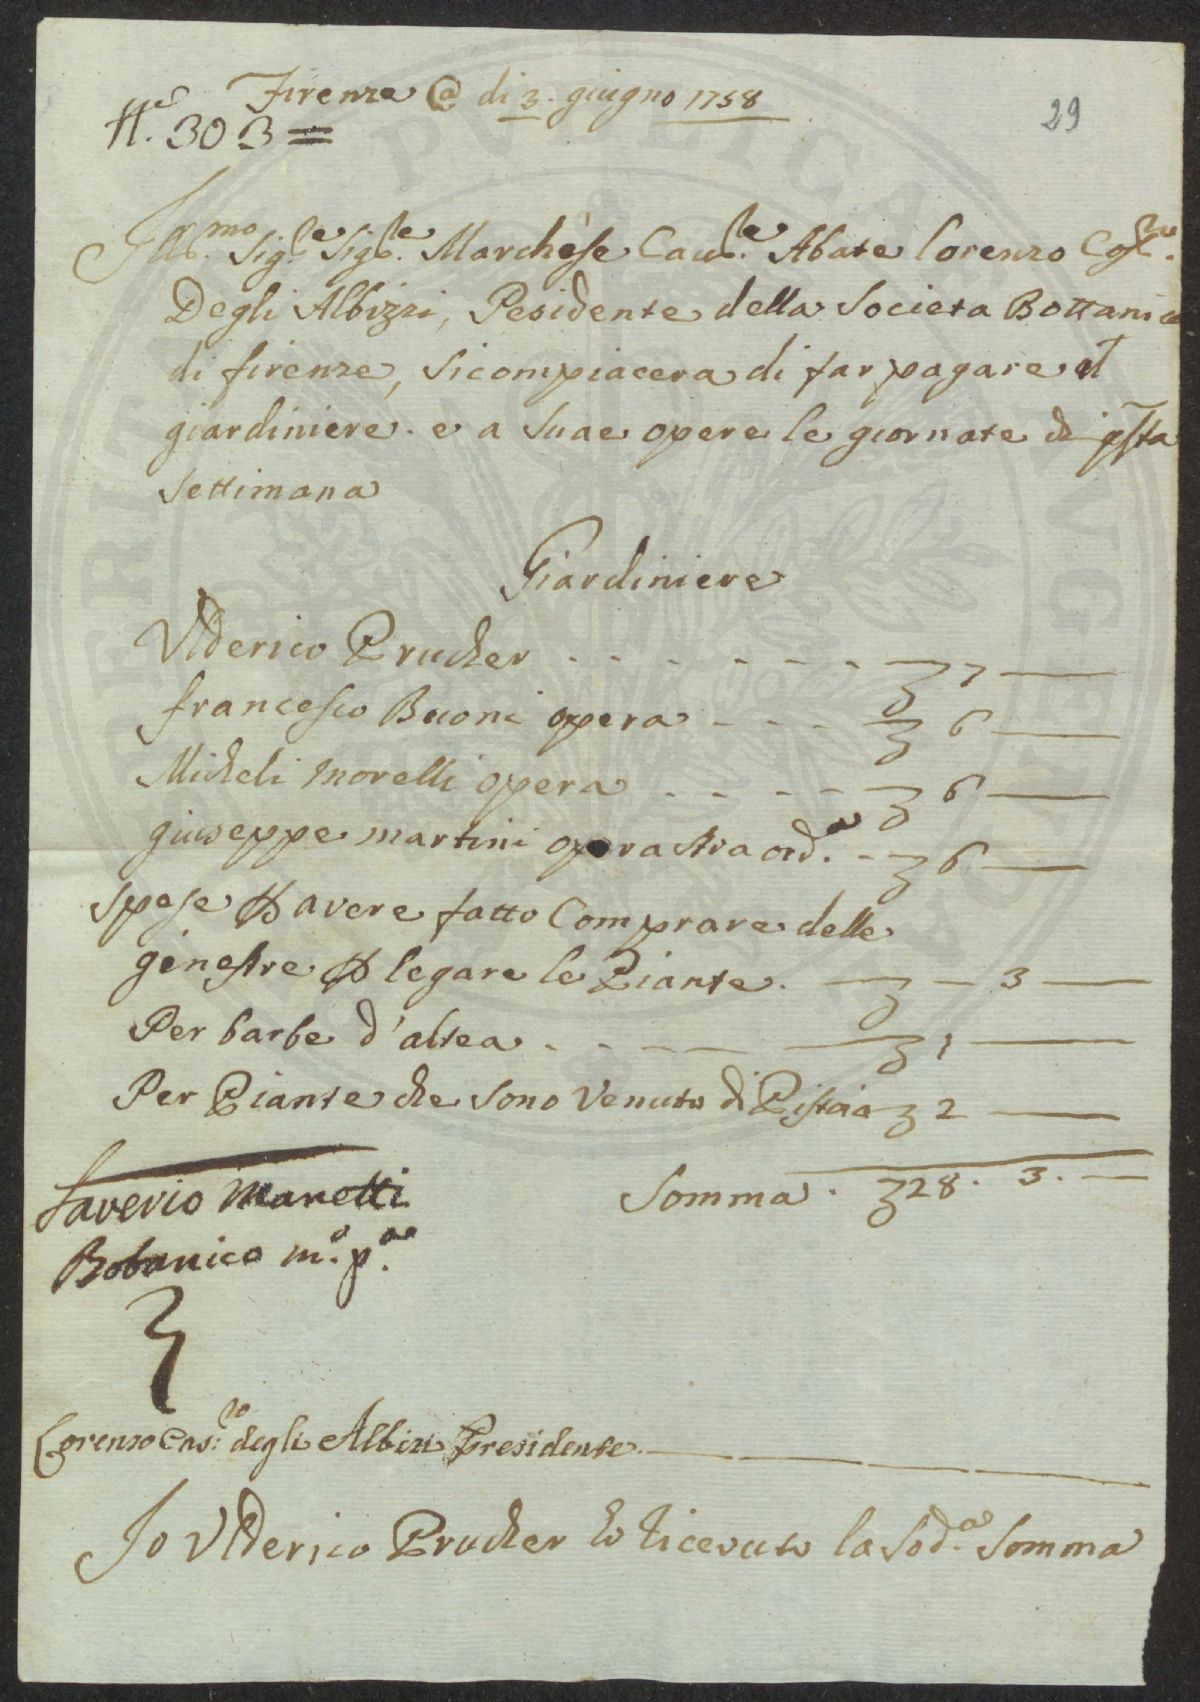 Firenze @ di 3. giugno 1758
N.o 303 =
29
Ill.mo Sig.re Sig.re Marchese Cau.re Abate Lorenzo
Degli Albizzi, Pesidente della Societa Bottanica
di firenze, si compiacera di far pagare al
giardiniere. e a Suae opere le giornate di qsta
Settimana
Giardiniere
Vlderico Prucher . - - - - - - 7 —
francesco Buoni opera - - - - 6 —
Micheli Morelli opera - - - - 6 —
giuseppe martini opera straord.a - 6 —
Spese P avere fatto Comprare delle
ginestre P legare le Piante. — - 3 —
Per barbe d'altea . - - — 1 —
Per Piante che sono Venuto di Pistoia 2 —
Somma . 28. 3. —
Saverio Manetti
Botanico m.o p.a
Lorenzo Cas:to degli Albizi Presidente
Io Vlderico Prucher ho Riceuuto la Sod.a Somma